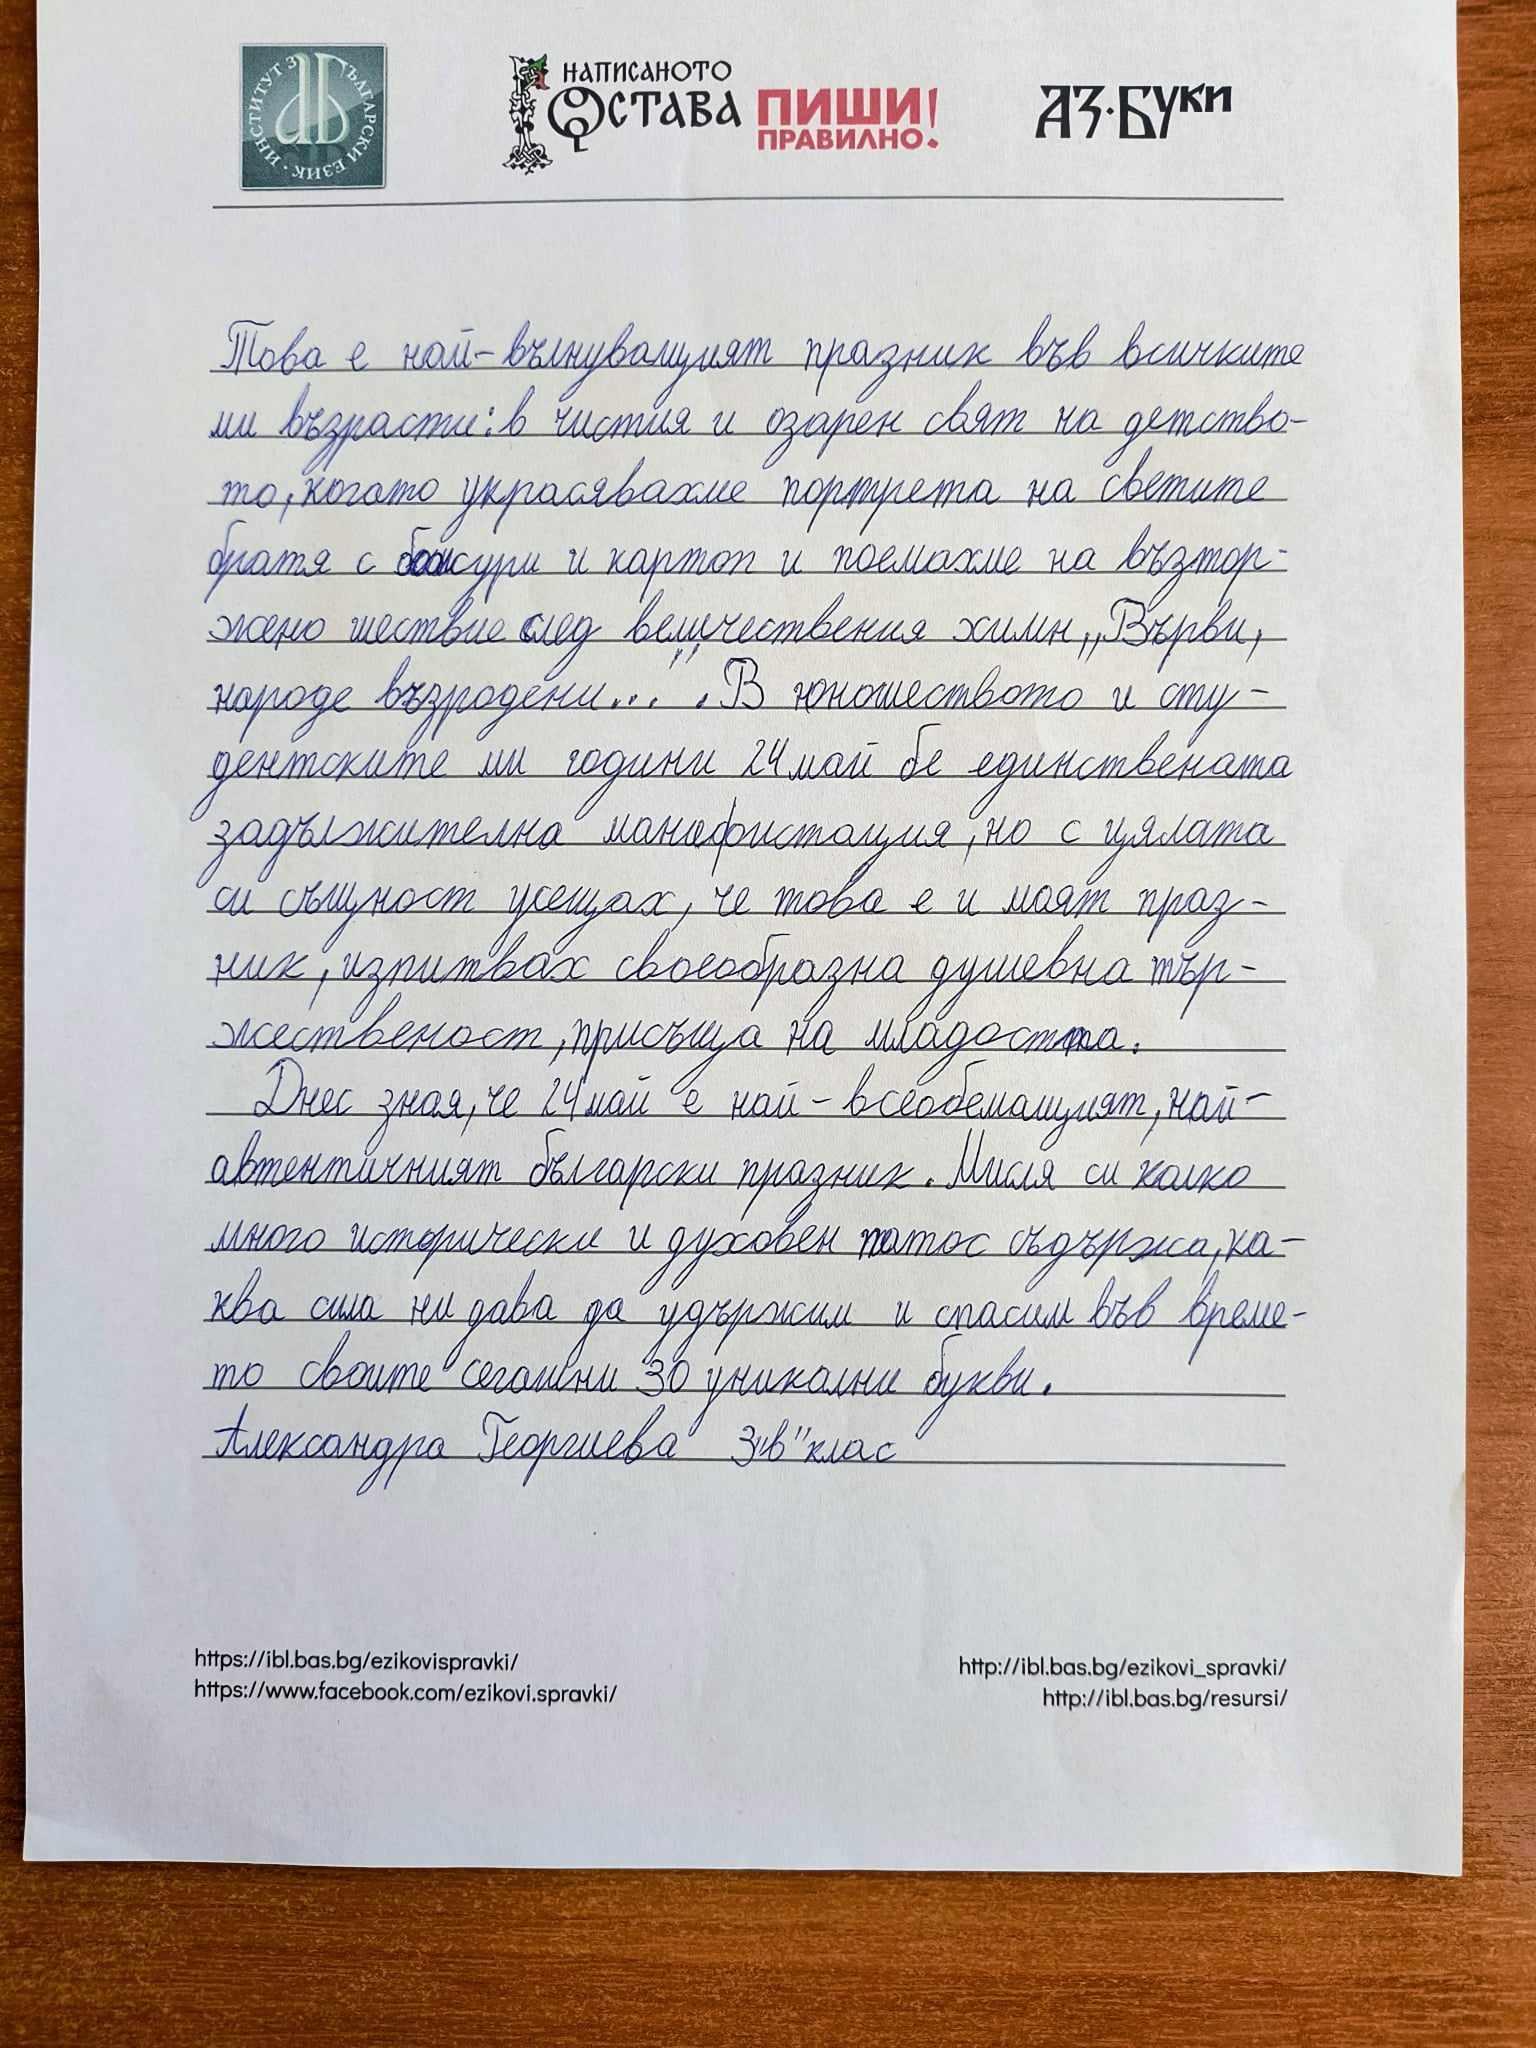 ИНСТИТУТ ЗА БЪЛГАРСКИ ЕЗИК
НАПИСАНОТО
ОСТАВА
ПИШИ
ПРАВИЛНО!
АЗ·БУКИ
Това е най-вълнуващият празник във всичките
ми възрасти: в чистия и озарен свят на детство-
то, когато украсявахме портрета на светите
братя с божури и картон и поемахме на възтор-
жено шествие след величествения химн „Върви,
народе възродени...". В юношеството и сту-
дентските ми години 24 май бе единствената
задължителна манифестация, но с цялата
си същност усещах, че това е и моят праз-
ник, изпитвах своеобразна душевна тър-
жественост, присъща на младостта.
Днес зная, че 24 май е най-всеобемащият, най-
автентичният български празник. Мисля си колко
много исторически и духовен патос съдържа, ка-
ква сила ни дава да удържим и спасим във време-
то своите сегашни 30 уникални букви.
Александра Георгиева 3 „в" клас
https://ibl.bas.bg/ezikovispravki/
https://www.facebook.com/ezikovi.spravki/
http://ibl.bas.bg/ezikovi_spravki/
http://ibl.bas.bg/resursi/